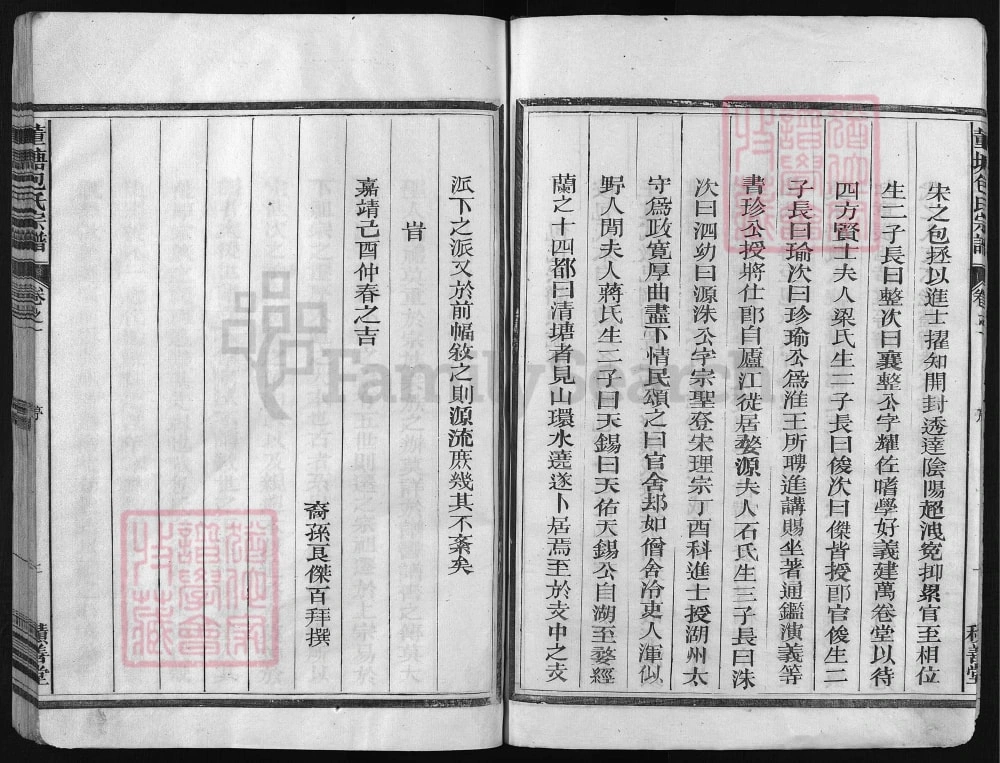 宋之包拯以進士擢知開封透達陰陽超洩寃抑累官至相位
生二子長曰整次曰襄整公字耀佐嗜學好義建萬卷堂以待
四方賢士夫人梁氏生二子長曰俊次曰傑皆授郎官俊生二
子長曰瑜次曰珍瑜公爲淮王所聘進講賜坐著通鑑演義等
書珍公授將仕郎自廬江徙居婺源夫人石氏生三子長曰洙
次曰泗幼曰源洙公字宗聖登宋理宗丁酉科進士授湖州太
守爲政寬厚曲盡下情民頌之曰官舍却如僧舍冷吏人渾似
野人閒夫人蔣氏生二子曰天錫曰天佑天錫公自湖至婺經
蘭之十四都曰清塘者見山環水遶遂卜居焉至於支中之支
派下之派又於前幅敘之則源流庶幾其不紊矣
旹
嘉靖己酉仲春之吉
裔孫良傑百拜撰
積善堂
FamilySearch